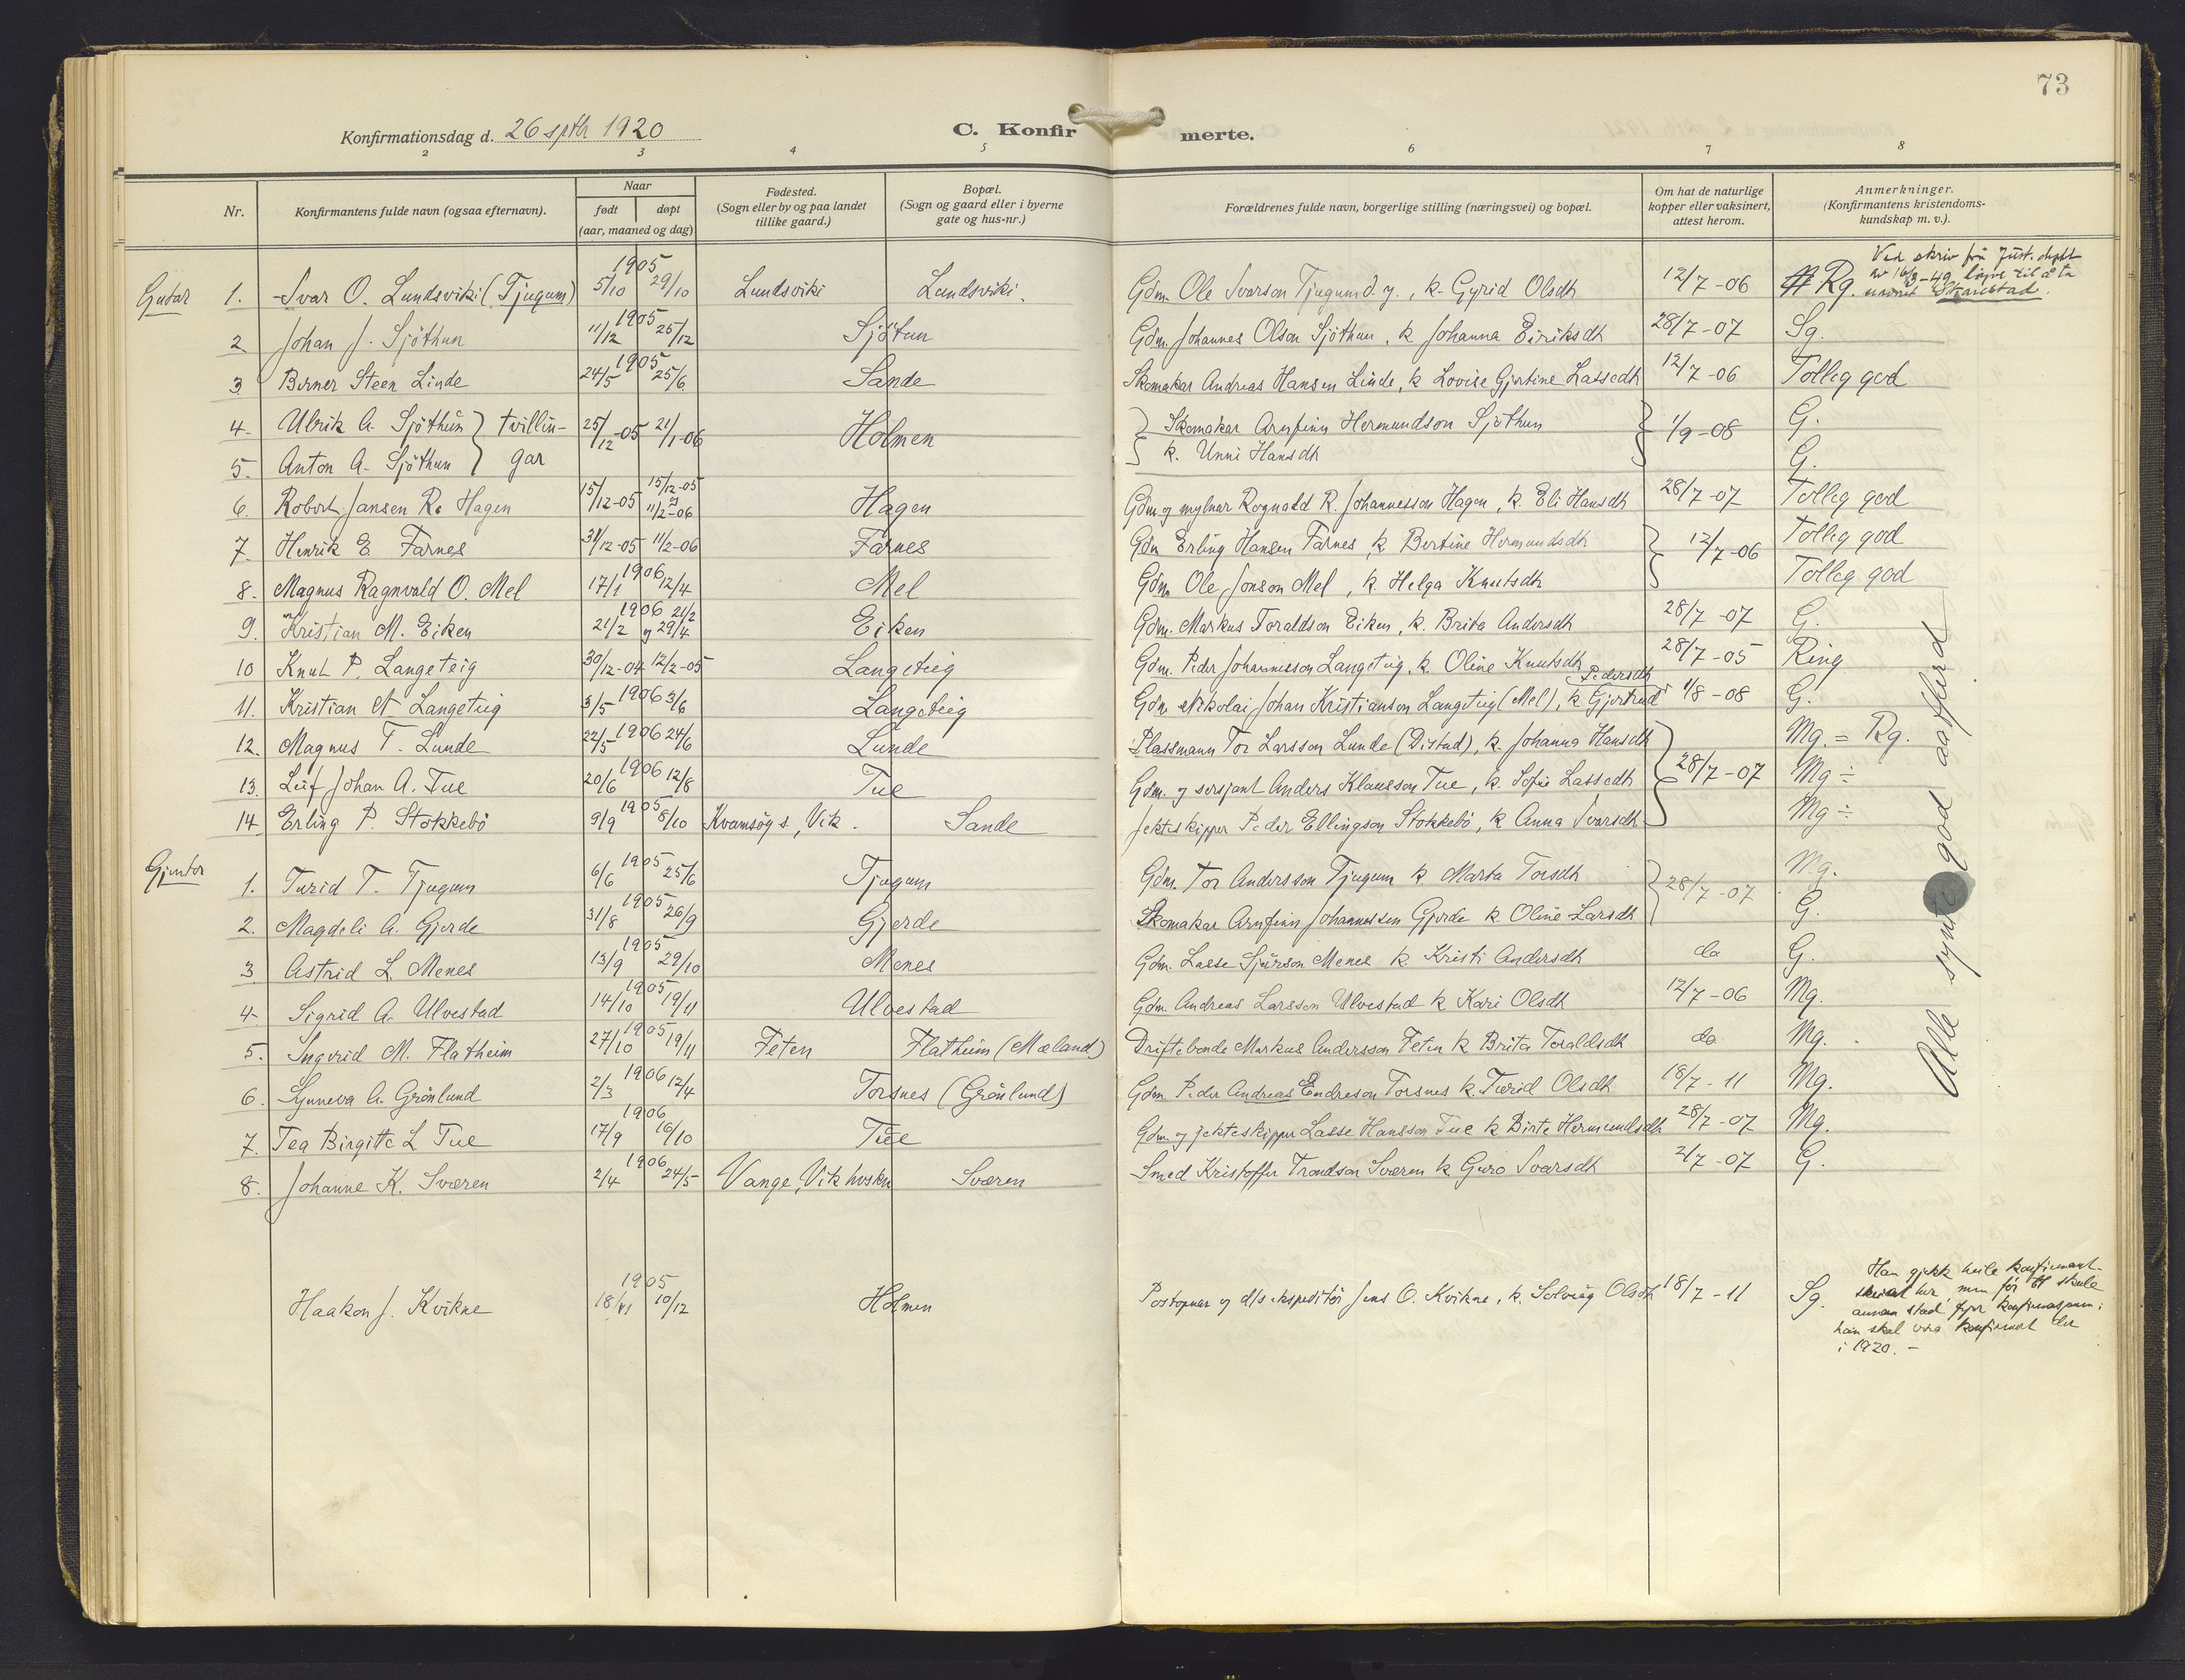 73
Konfirmationsdag d. 26 septb 1920
C. Konfirmerte.
2 3 4 5 6 7 8
Nr.
Konfirmantens fulde navn (ogsaa efternavn).
Naar født døpt (aar, maaned og dag)
Fødested. (Sogn eller by og paa landet tillike gaard.)
Bopæl. (Sogn og gaard eller i byerne gate og hus-nr.)
Forældrenes fulde navn, borgerlige stilling (næringsvei) og bopæl.
Om hat de naturlige kopper eller vaksinert, attest herom.
Anmerkninger. (Konfirmantens kristendomskundskap m. v.).
Gutar 1. Ivar O. Lundsviki (Tjugum) 1905 5/10 29/10 Lundsviki Lundsviki. Gdm. Ole Ivarson Tjugum d.y., k. Gyrid Olsdh 12/7-06 Rg. Ved skriv frå Just. dept av 16/3-49 løyve til å ta namnet Skarestad.
2 Johan J. Sjöthun 1905 11/12 25/12 Sjötun Gdm. Johannes Olson Sjöthun, k Johanna Eiriksdh 28/7-07 Sg.
3 Berner Steen Linde 1905 24/5 25/6 Sande Skomakar Andreas Hansen Linde, k Lovise Gjertine Lassedh 12/7-06 Tolleg god
4. Ulrik A. Sjöthun } tvillin- 25/12-05 21/1-06 Holmen } Skomakar Arnfinn Hermundson Sjöthun } 1/9-08 G.
5. Anton A. Sjöthun } gar k. Unni Hansdh G.
6. Robert Jansen R. Hagen 15/12-05 15/12-05 og 11/2-06 Hagen Gdm. og mylnar Rognald R. Johannesson Hagen, k. Eli Hansdh 28/7-07 Tolleg god
7. Henrik E Farnes 31/12-05 11/2-06 Farnes Gdm Erling Hansen Farnes, k. Bertine Hermundsdh } 12/7-06 Tolleg god
8. Magnus Ragnvald O. Mel 1906 17/1 12/4 Mel Gdm. Ole Jonson Mel, k. Helga Knutsdh Tolleg god
9. Kristian M. Eiken 1906 21/2 21/2 og 29/4 Eiken Gdm. Markus Toraldson Eiken, k. Brita Andersdh 28/7-07 G.
10 Knut P. Langeteig 30/12-04 12/2-05 Langeteig Gdm. Peder Johannesson Langeteig, k. Oline Knutsdh 28/7-05 Ring
11. Kristian N Langeteig 1906 3/5 3/6 Langeteig Gdm Nikolai Johan Kristianson Langeteig (Mel), k Gjertrud Pedersdh 1/8-08 G.
12. Magnus T. Lunde 1906 22/5 24/6 Lunde Plassmann Tor Larsson Lunde (Distad), k. Johanna Hansdh } 28/7-07 Mg. = Rg.
13. Leif Johan A. Tue 1906 20/6 12/8 Tue Gdm. og sersjant Anders Klausson Tue, k. Sofie Lassedh Mg ÷
14 Erling P. Stokkebö 1905 9/9 8/10 Kvamsöy s., Vik. Sande Jekteskipper Peder Ellingson Stokkebö, k Anna Ivarsdh Mg ÷
Gjentor 1. Turid T. Tjugum 1905 6/6 25/6 Tjugum Gdm. Tor Andersson Tjugum k Marta Torsdh } 28/7-07 Mg.
2. Magdeli A. Gjerde 1905 31/8 26/9 Gjerde Skomakar Arnfinn Johannessen Gjerde k Oline Larsdh G.
3 Astrid L Menes 1905 13/9 29/10 Menes Gdm. Lasse Sjurson Menes k. Kristi Andersdh do G.
4. Sigrid A. Ulvestad 1905 14/10 19/11 Ulvestad Gdm. Andreas Larsson Ulvestad k Kari Olsdh 12/7-06 Mg.
5. Ingerid M. Flatheim 1905 27/10 19/11 Feten Flatheim (Mæland) Driftebonde Markus Andersson Feten k Brita Toraldsdh do. Mg.
6. Synneva A. Grönlund 1906 2/3 12/4 Torsnes (Grönlund) Gdm Peder Andreas Endreson Torsnes k. Turid Olsdh 18/7-11 Mg.
7. Tea Birgitte L Tue 1906 17/9 16/10 Tue Gdm. og jekteskipper Lasse Hansson Tue k Birte Hermundsdh 28/7-07 Mg.
8. Johanne K. Sværen 1906 2/4 24/5 Vange, Vik hvskn Sværen Smed Kristoffer Trondson Sværen k Guro Ivarsdh 2/7-07 G.
Alle synte god aatferd
Haakon J. Kvikne 1905 18/11 10/12 Holmen Postopnar og d/s ekspeditör Jens O. Kvikne, k. Solveig Olsdh 18/7-11 Sg. Han gjekk heile konfirmant-
skulen her, men för til skule
annan stad fyre konfirmasjonen;
han skal vera konfirmert der
i 1920. -